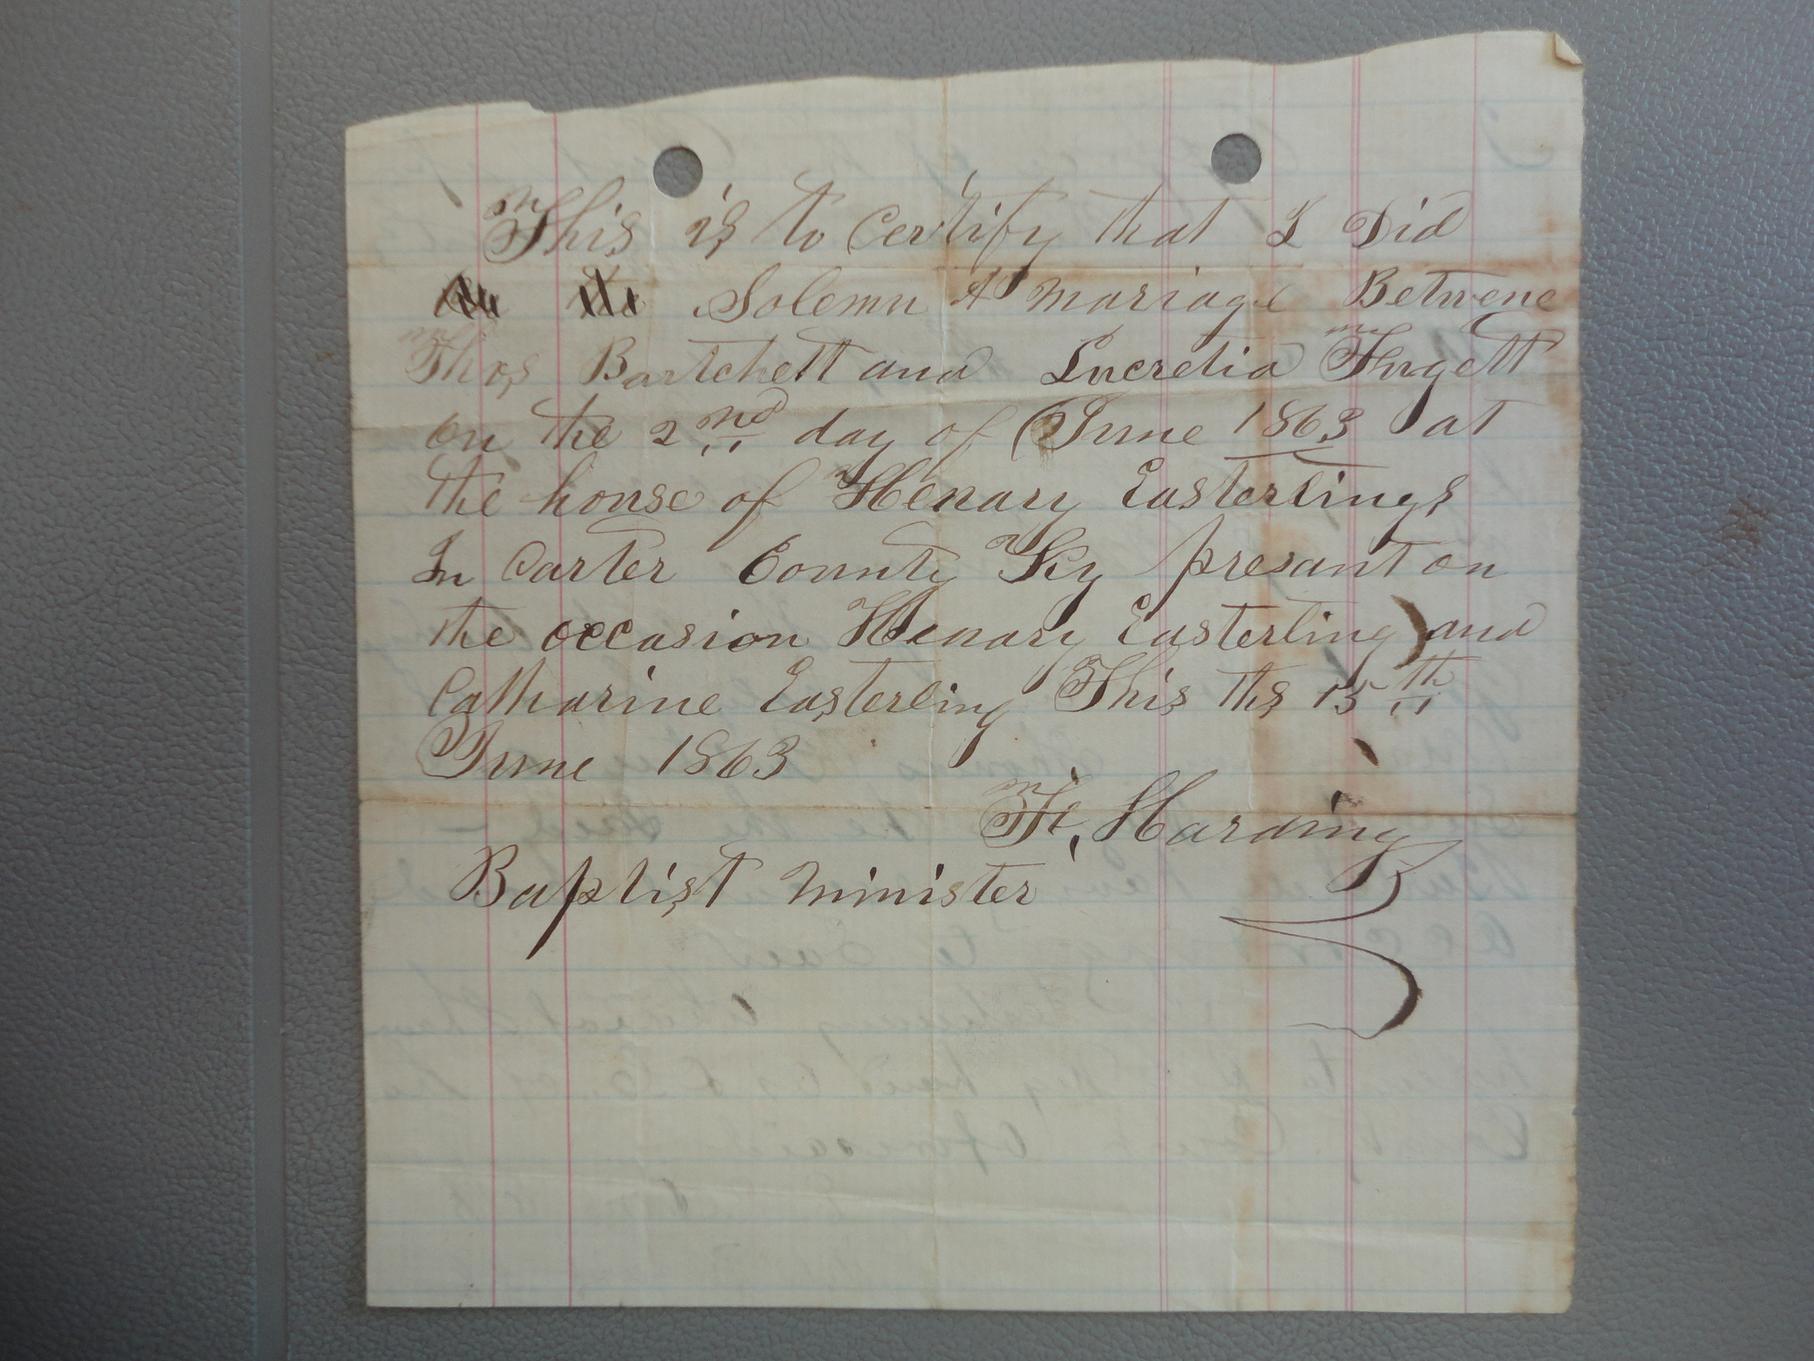 This is to Certify that I Did
Solemn A mariage Betwene
Thos Bartchett and Lucretia Fugett
on the 2nd day of June 1863 at
the house of Henary Easterlings
In Carter County Ky presant on
the occasion Henary Easterling and
Catharine Easterling This the 15th
June 1863
Harding
Baptist minister